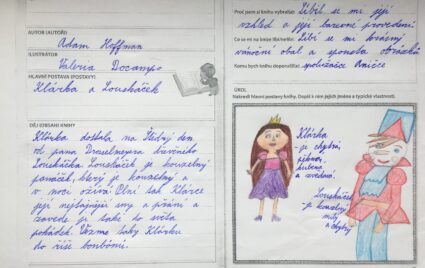 AUTOR (AUTOŘI)
Adam Hoffman
ILUSTRÁTOR
Valeria Docampo
HLAVNÍ POSTAVA (POSTAVY)
Klárka a Louskáček
DĚJ (OBSAH) KNIHY
Klárka dostala na Štědrý den
od pana Droselmajera dřevěného
Louskáčka. Louskáček je kouzelný
panáček, který je kouzelný a
v noci ožívá. Plní tak Klárce
její nejtajnější sny a přání a
zavede ji také do světa
pohádek. Vezme taky Klárku
do říše bonbónů.
Proč jsem si knihu vybral(a):
Líbil se mi její
vzhled a její barevné provedení.
Co se mi na knize líbilo/nelíbilo:
Líbil se mi krásný
vánoční obal a spousta obrázků
Komu bych knihu doporučil(a):
spolužačce Aničce
ÚKOL
Nakresli hlavní postavy knihy. Dopiš k nim jejich jména a typické vlastnosti.
Klárka
- je chytrá
pěkná,
hubená
a zvědavá.
Louskáček
- je kouzelný
milý
a chytrý